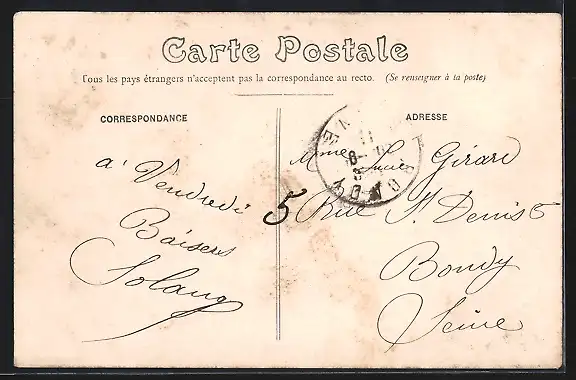 Carte Postale
Tous les pays étrangers n'acceptent pas la correspondance au recto. (Se renseigner à la poste)
CORRESPONDANCE
ADRESSE
a' Vendredi
Baisers
Solange
Mme Lucie Girard
5 Rue St Denis 5
Bondy
Seine
BONDY